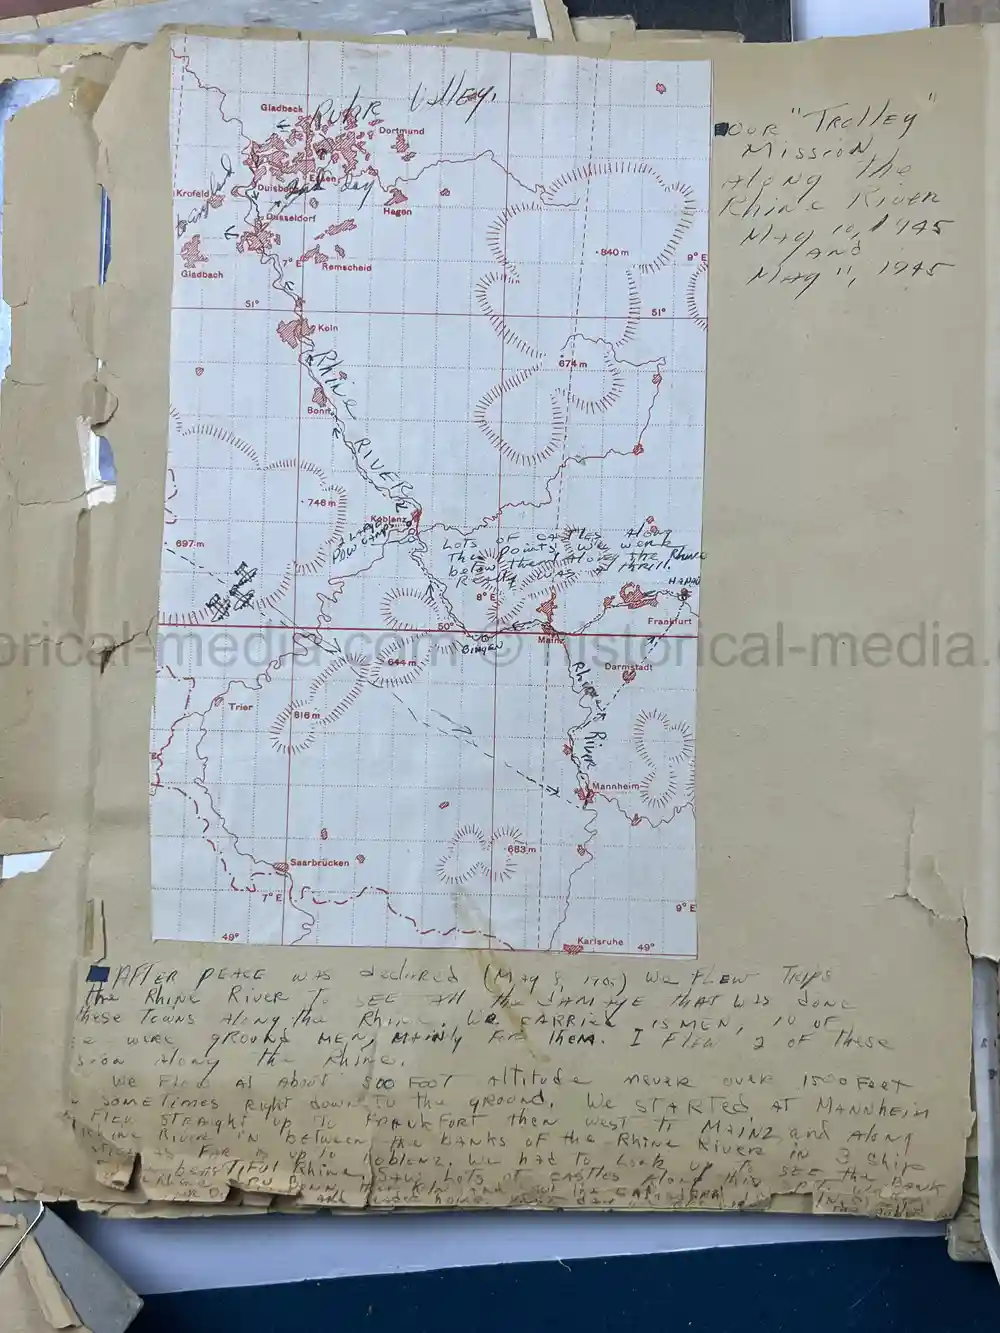 Ruhr Valley.
Gladbeck
Dortmund
Essen
Krefeld
Duisburg
day
Hagen
Düsseldorf
Gladbach
7° E
Remscheid
840 m
9° E
51°
51°
Köln
Rhine
674 m
Bonn
RIVER
748 m
Koblenz
2 LARGE
POW CAMPS
697 m
LOTS OF CASTLES Along
These points we were
below them along the Rhine
Really was a thrill.
HANAU
8° E
50°
Frankfurt
Mainz
BINGEN
644 m
Darmstadt
Rhine
River
Trier
816 m
Mannheim
683 m
Saarbrücken
7° E
9° E
49°
Karlsruhe
49°
OUR "TROLLEY"
Mission
Along the
Rhine River
May 10, 1945
AND
May 11, 1945
orical-media.com © historical-media.
AFTER PEACE was declared (May 8, we FLEW TRIPS
the Rhine River To SEE All the DAMAGE THAT WAS done
these Towns Along the Rhine. We CARRIED 15 MEN, 10 OF
were ground MEN, MAINLY FOR them. I FLEW 2 OF These
Along the Rhine.
We Flew At About 500 FOOT Altitude never over 1500 Feet
SOMETIMES Right down TO the ground. We STARTED AT MANNHEIM
FLEW STRAIGHT up To FRANKFORT then west To MAINZ and Along
Rhine River IN between the banks of the Rhine River IN 3 Ship
AS FAR as up To Koblenz. We had To Look up To SEE the BANK
beautiful Rhine. Saw Lots of CASTLES Along this